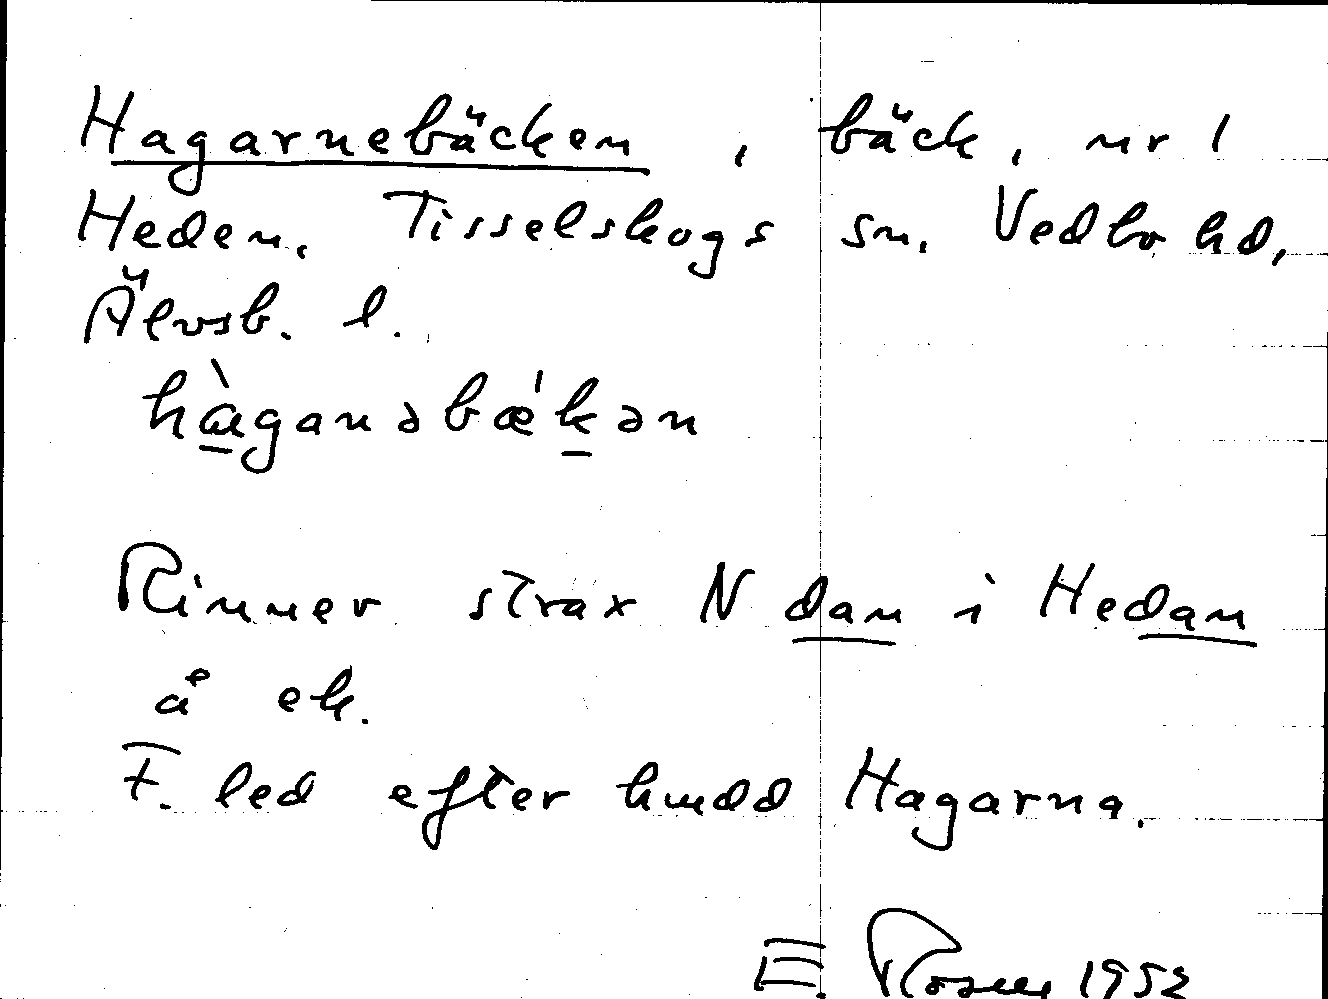 Hagarnebäcken, bäck, nr 1
Heden, Tisselskogs sn. Vedbo hd,
Älvsb. l.
hàganəbæ'kən
Rinner strax N dan i Hedan
å ek.
F. led efter hmdd Hagarna.
E. Rosell 1952